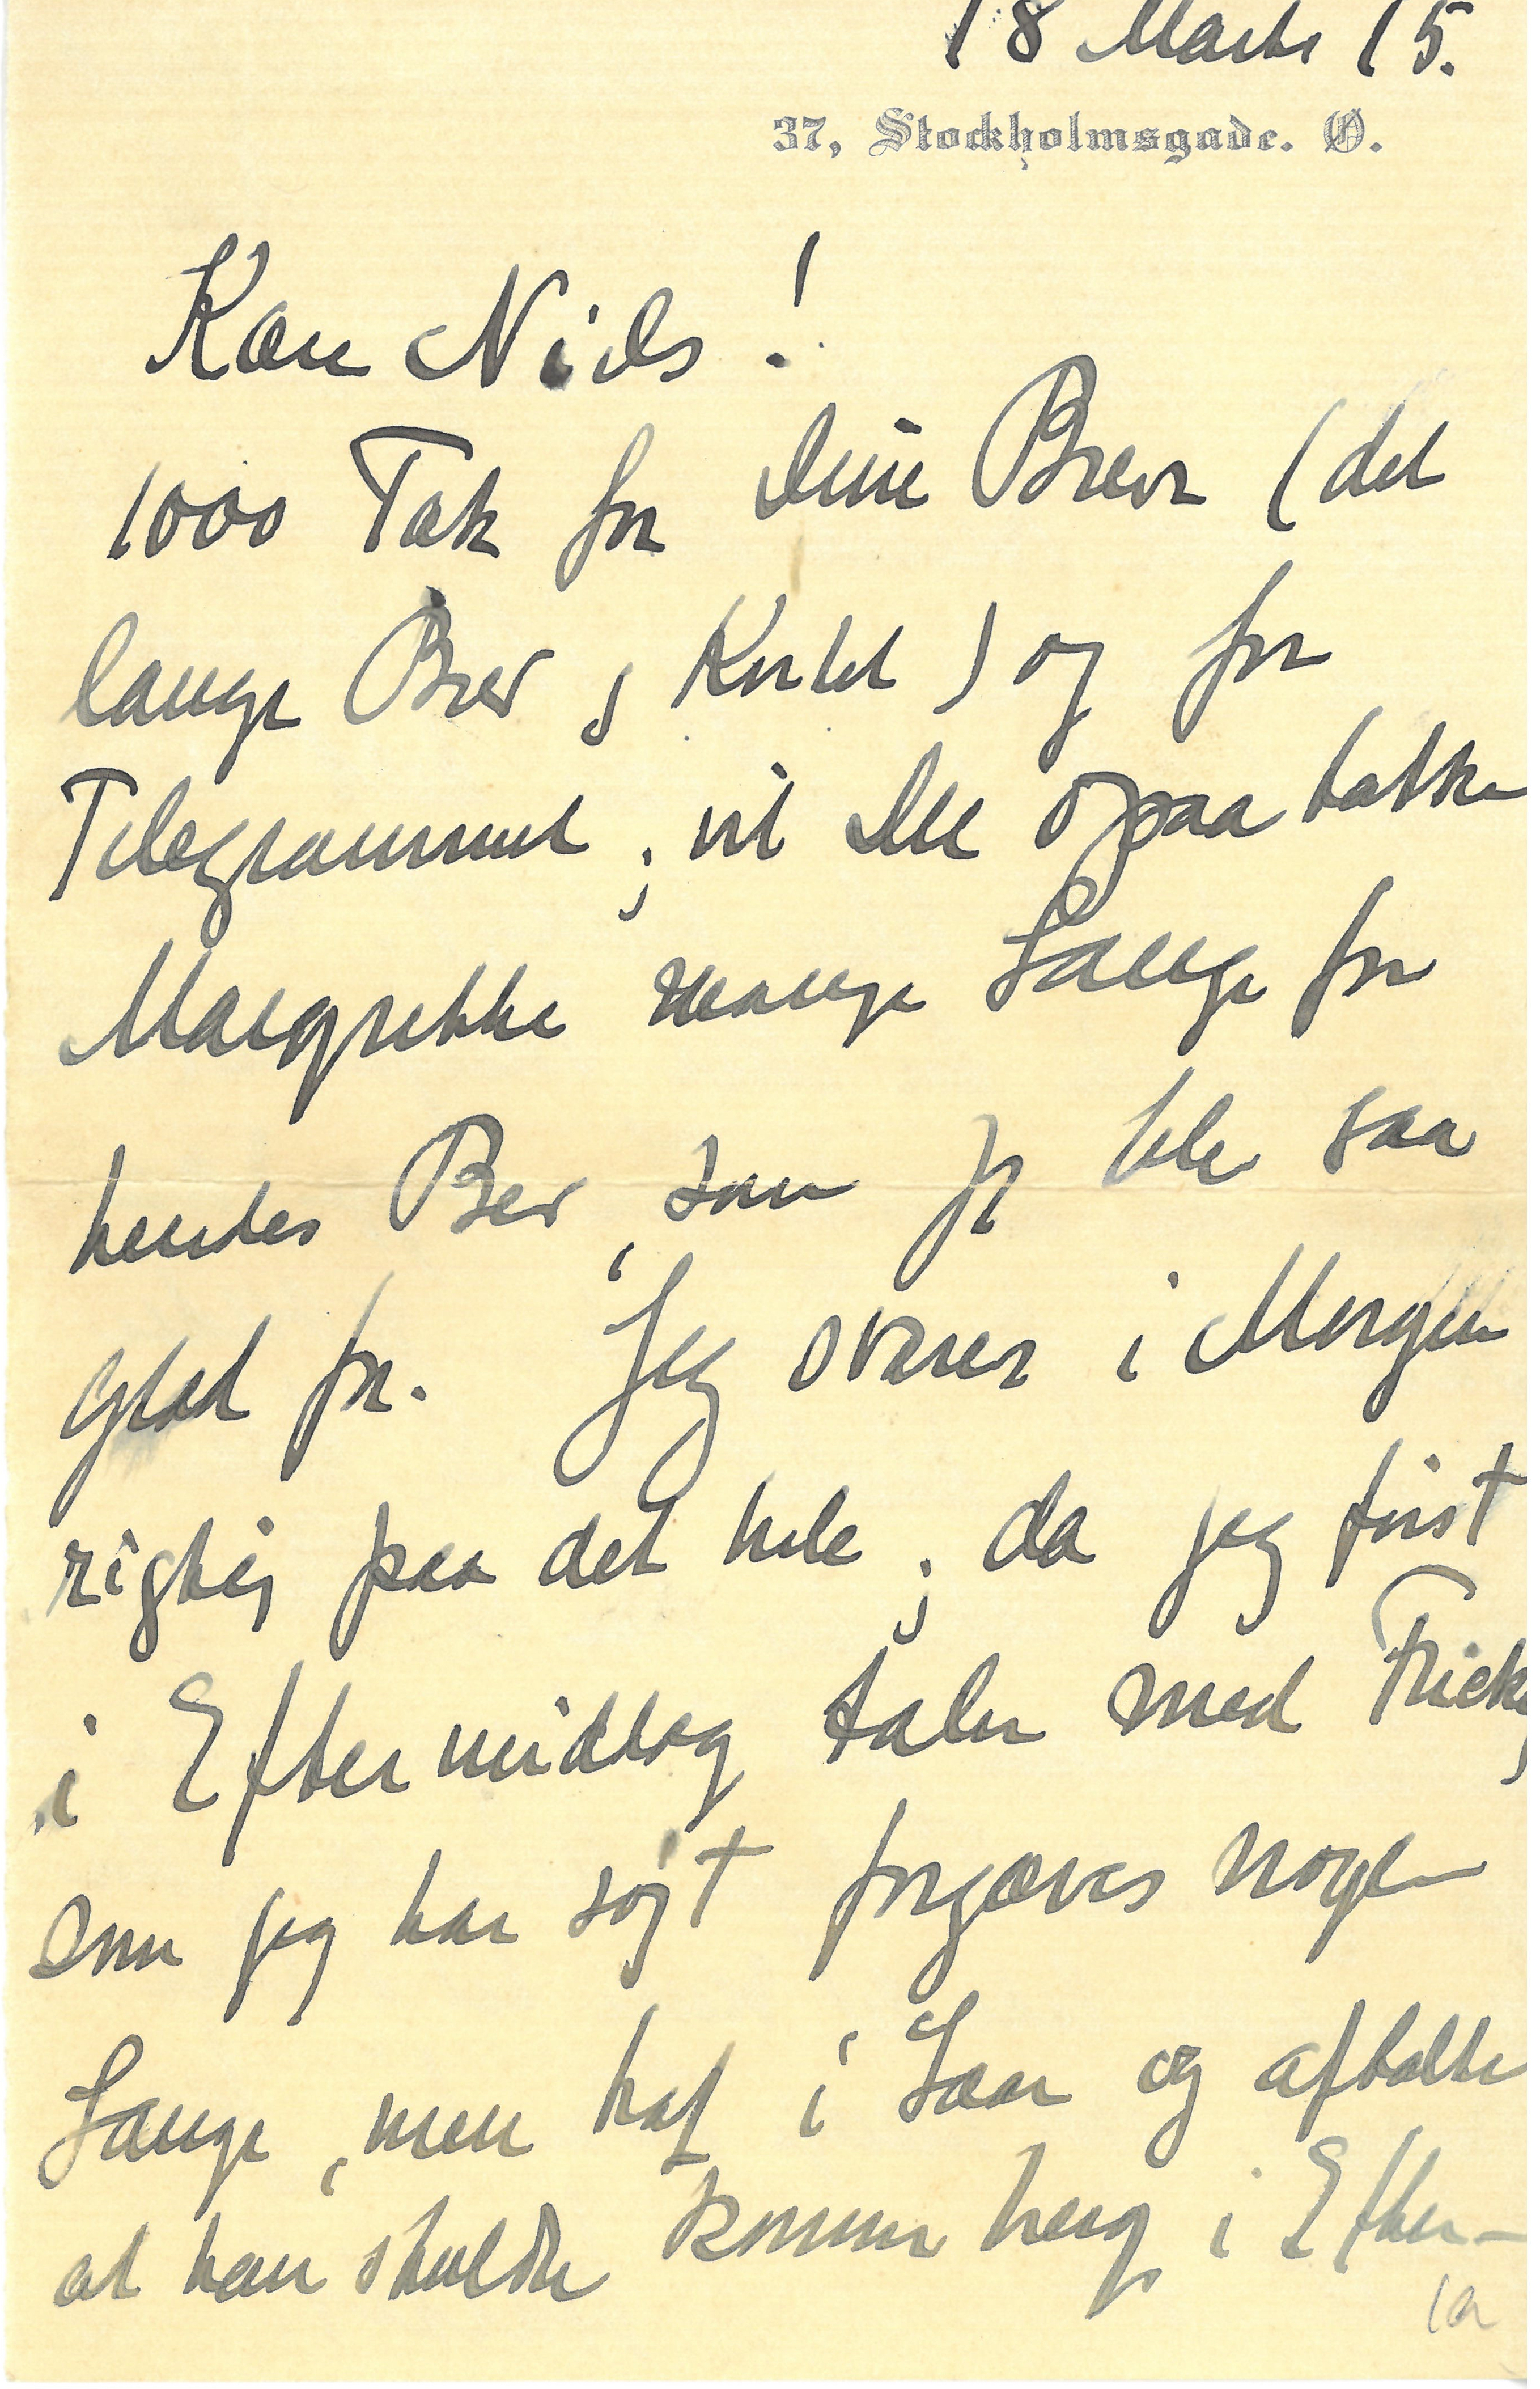 18 Marts 15.
37, Stockholmsgade. Ø.
Kære Niels!
1000 Tak for dine Breve (det
lange Brev, Kortet) og for
Telegrammet; vil Du ogsaa takke
Margrethe mange Gange for
hendes Brev, som jeg blev saa
glad for. Jeg svarer i Morgen
rigtig paa det hele; da jeg først
i Eftermiddag taler med Fricke,
som jeg har søgt forgæves nogen
Gange, men traf i Gaar og aftalte
at han skulde komme herop i Efter-
1a